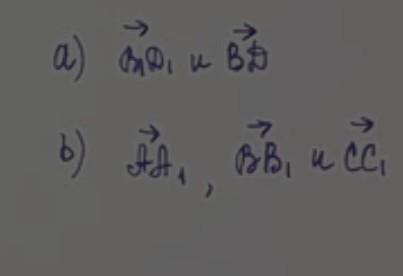 a) B₁D₁ и BD
b) AA₁, BB₁ и CC₁